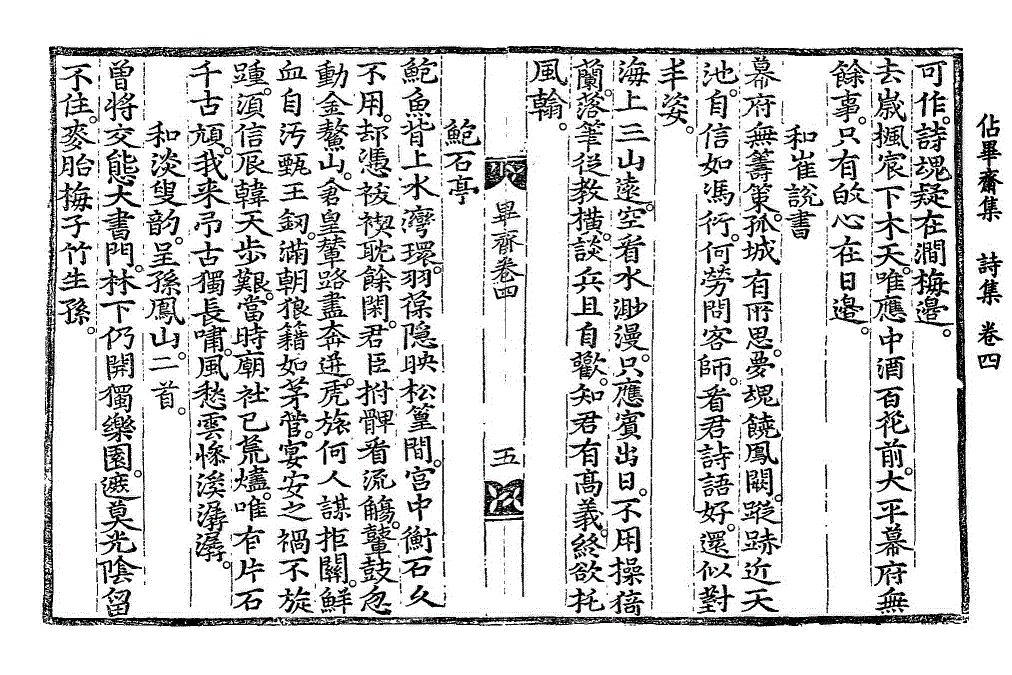 佔畢齋集　詩集　卷四
可作。詩魂疑在澗梅邊。
去歲楓宸下木天。唯應中酒百花前。大平幕府無
餘事。只有的心在日邊。
和崔說書
幕府無籌策。孤城有所思。夢魂饒鳳闕。蹤跡近天
池。自信如馮衍。何勞問客師。看君詩語好。還似對
丰姿。
海上三山遠。空看水渺漫。只應賓出日。不用操猗
蘭。落筆從敎橫。談兵且自歡。知君有高義。終欲托
風翰。
畢齋卷四
五
鮑石亭
鮑魚背上水灣環。羽葆隱映松篁間。宮中衡石久
不用。却憑袚禊耽餘閑。君臣拊髀看流觴。鼙鼓忽
動金鰲山。倉皇輦路盡奔迸。虎旅何人謀拒關。鮮
血自汚甄王劒。滿朝狼籍如茅菅。宴安之禍不旋
踵。湏信辰韓天步艱。當時廟社已荒燼。唯有片石
千古頑。我来吊古獨長嘯。風愁雲慘溪潺潺。
和淡叟韵。呈孫鳳山。二首。
曾將交態大書門。林下仍開獨樂園。遮莫光陰留
不住。麥胎梅子竹生孫。